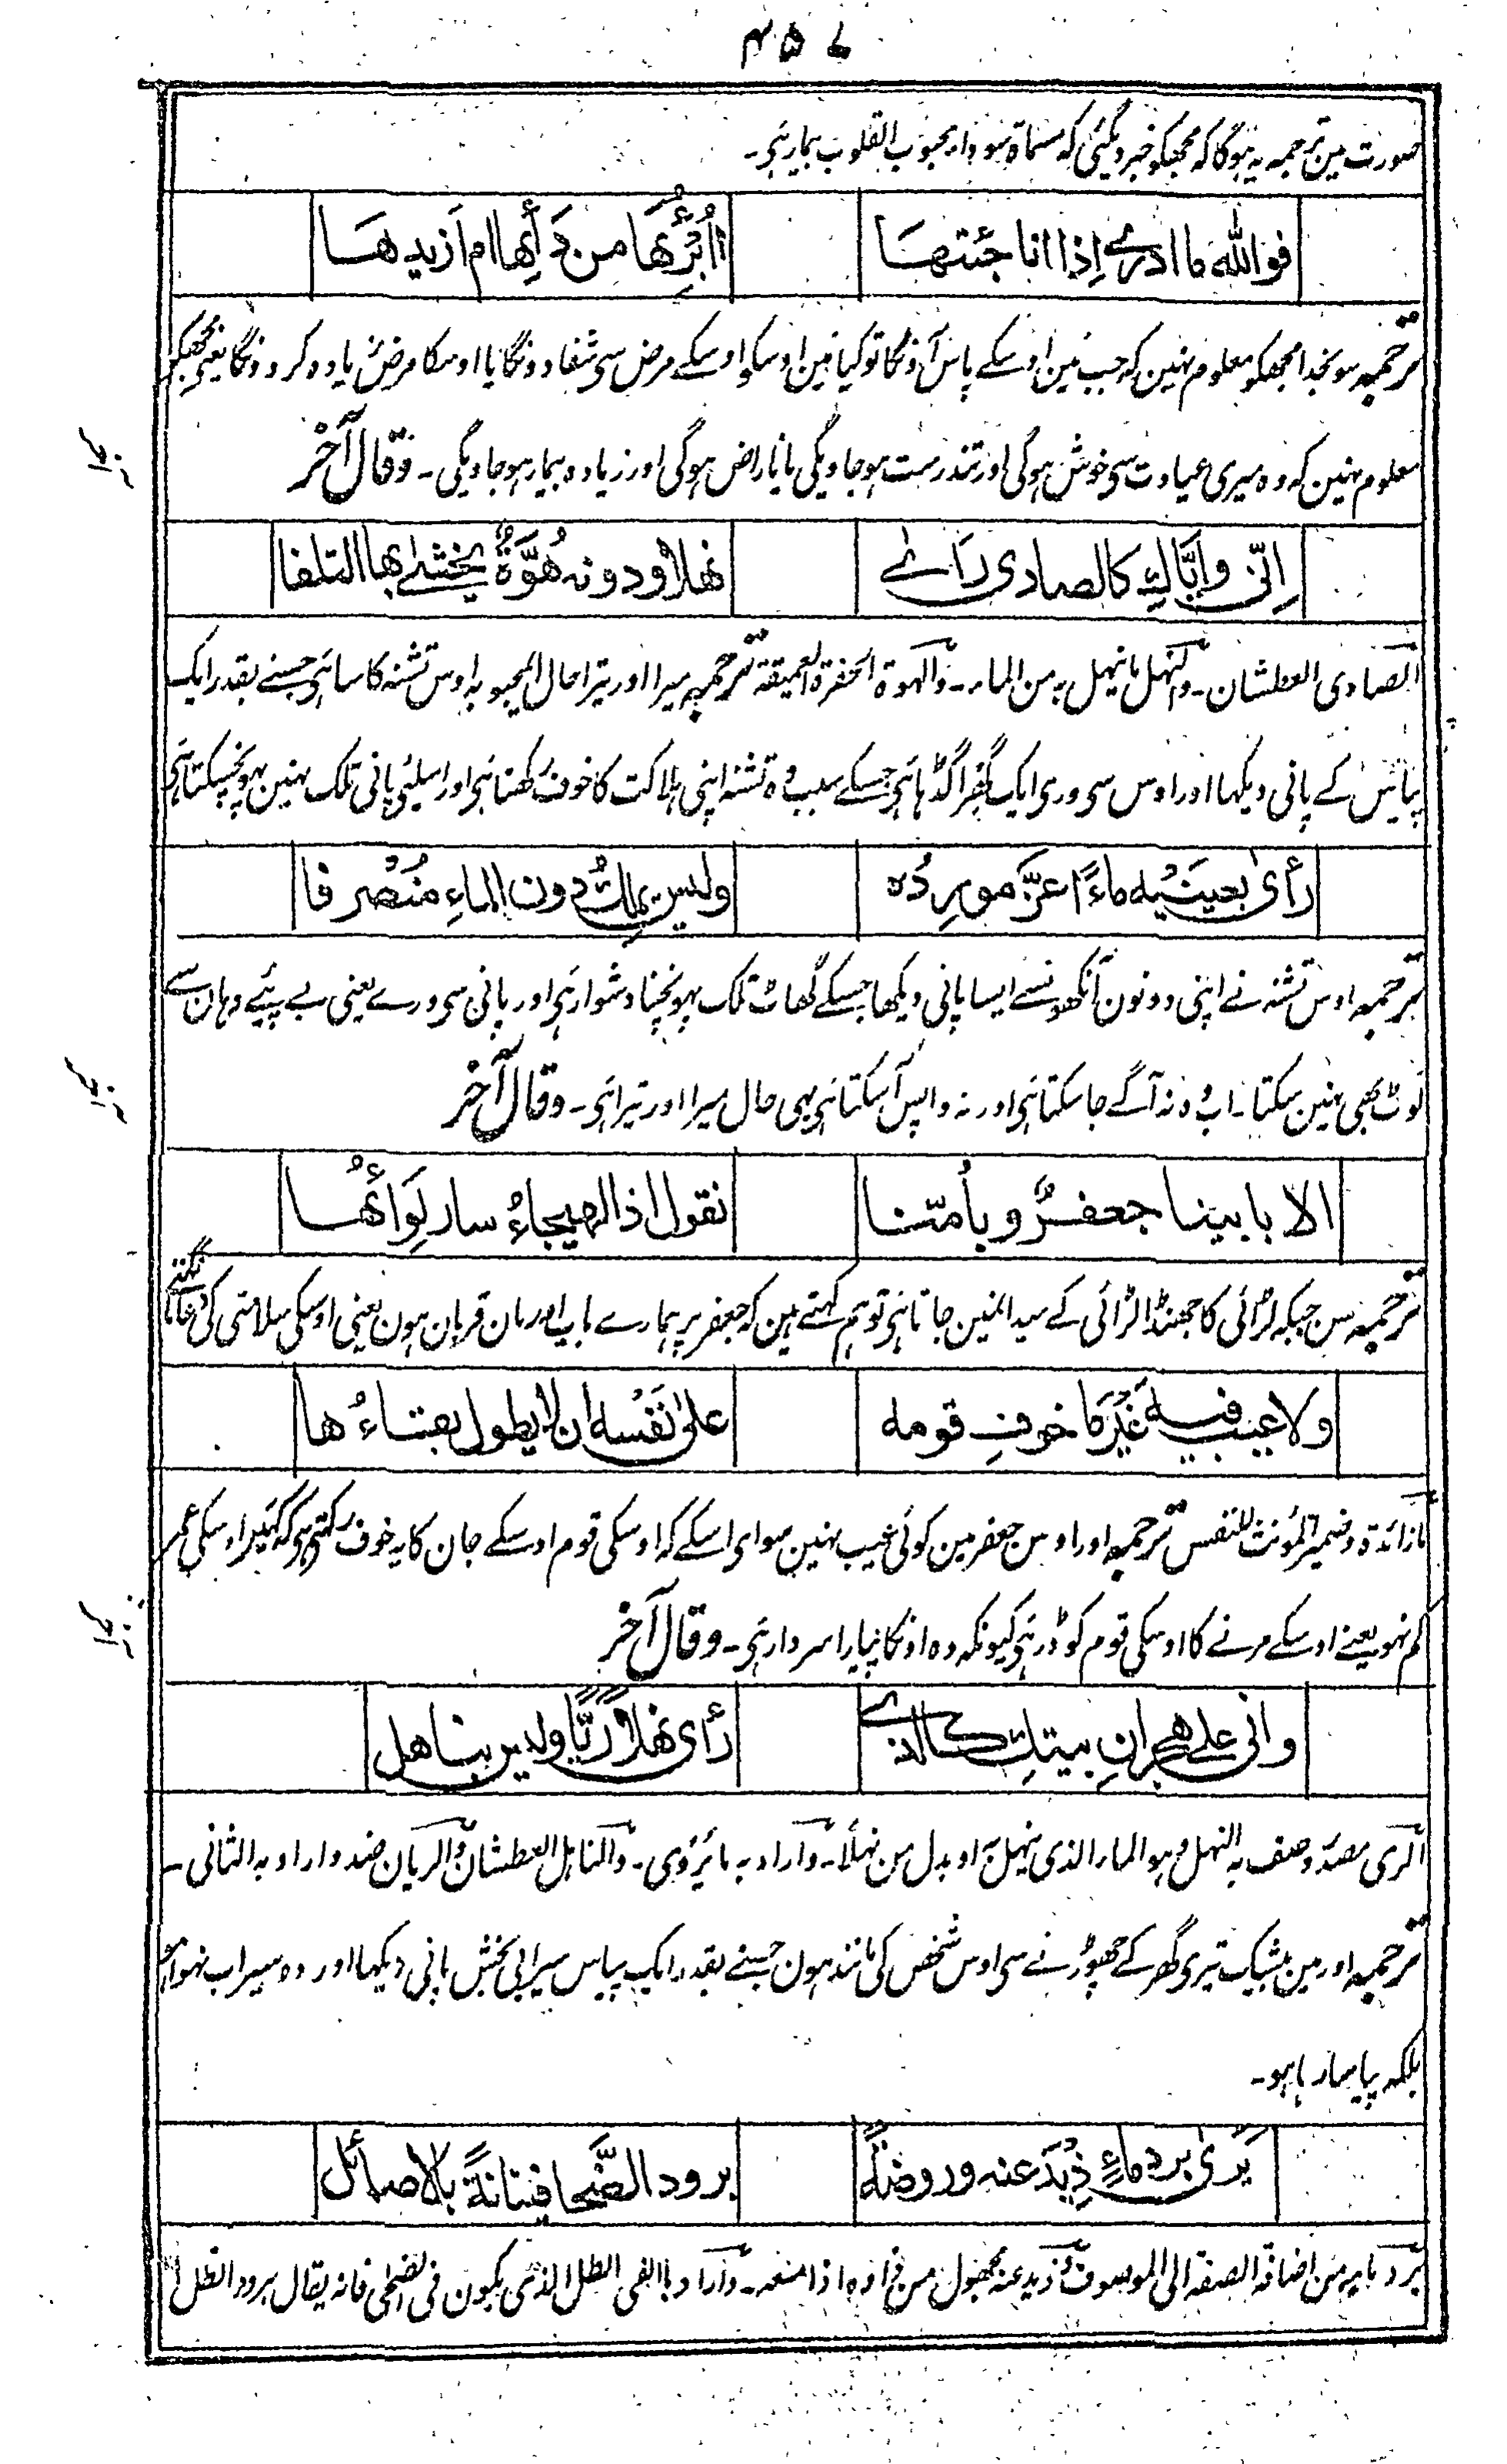 ۴۵۷
صورت مین ترجمہ یہ ہوگا کہ مجھکو خبر دیگئی کہ مسماۃ سوداء محبوب القلوب بیمار ہی۔
فواللہ ما ادرے اِذا انا جئتهَا أاُبَرِّئُهَا من دَائِها ام اَزیدهَا
ترجمہ سو بخدا مجھکو معلوم نہین کہ جب مین اوسکے پاس آؤنگا تو کیا مین اوسکو اوسکے مرض سی شفا دونگا یا اوسکا مرض زیادہ کردونگا یعنی مجھکو
معلوم نہین کہ وہ میری عیادت سی خوش ہوگی اور تندرست ہوجاویگی یا ناراض ہوگی اور زیادہ بیمار ہوجاویگی۔ وقال آخر
اِنّی واِیَّاكِ کالصادی رَاٰے نهلًا ودونہ هُوَّةٌ یخشٰے بها التلفا
الصادی العطشان۔ والنہل ما ینہل بہ من الماء۔ والہوۃ الحفرۃ العمیقۃ ترجمہ میرا اور تیرا حال ای محبوبہ اوس تشنہ کا سا ہی جسنے بقدر ایک
پیاس کے پانی دیکھا اور اوس سی وری ایک گہرا گڈہا ہی جسکے سبب وہ تشنہ اپنی ہلاکت کا خوف رکھتا ہی اور اسلیے پانی تلک نہین پہونچسکتا ہی
رأیٰ بعینَیْه ماءً اعزَّ موردُہ ولیس یملكُ دون الماءِ مُنْصرفا
ترجمہ اوس تشنہ نے اپنی دونون آنکھونسے ایسا پانی دیکھا جسکے گھاٹ تلک پہونچنا دشوار ہی اور پانی سی ورے یعنی بے پیئے وہان سے
لوٹ بھی نہین سکتا۔ اب وہ نہ آگے جا سکتا ہی اور نہ واپس آسکتا ہی یہی حال میرا اور تیرا ہی۔ وقال آخر
الا بابینا جعفرٌ وباُمّنا نقول اذا الهیجاءُ سار لِوَائُهَا
ترجمہ سن جبکہ لڑائی کا جھنڈا لڑائی کے میدانمین جاتا ہی تو ہم کہتے ہین کہ جعفر پر ہمارے باپ اور مان قربان ہون یعنی اوسکی سلامتی کی دعا مانگتے
ولا عیب فیه غیرَ ما خوفِ قومه علیٰ نَفْسه ان لا یطول بقاءُها
ما زائدۃ وضمیر المؤنث للنفس ترجمہ اور اوس جعفر مین کوئی عیب نہین سوای اسکے کہ اوسکی قوم اوسکے جان کا یہ خوف رکھتی ہی کہ کہین اوسکی عمر
کم نہو یعنے اوسکے مرنے کا اوسکی قوم کو ڈر ہی کیونکہ وہ اونکا پیارا سردار ہی۔ وقال آخر
وانی علے هجرانِ بیتكِ کالذے رأی نهلًا رَیًّا ولیس بناهل
الری مصدر وصف بہ النہل وہو الماء الذی ینہل بہ او بدل من نہلًا۔ واراد بہ ما یُروی۔ والناہل العطشان والریان ضد واراد بہ الثانی۔
ترجمہ اور مین بیشک تیری گھر کے چھوڑنے سی اوس شخص کی مانند ہون جسنے بقدر ایک پیاس سیرابی بخش پانی دیکھا اور وہ سیراب نہوا ہو
بلکہ پیاسا رہا ہو۔
یَریٰ بردَ ماءٍ ذِیْدَ عنه وروضةً برود الضّحا فینانةً بالاصائل
برد ماء من اضافۃ الصفۃ الی الموصوف وذید عنہ مجہول من ذادہ اذا منعہ۔ واراد بالفی الظل الذی یکون فی الضحی فانہ یقال برود الظل